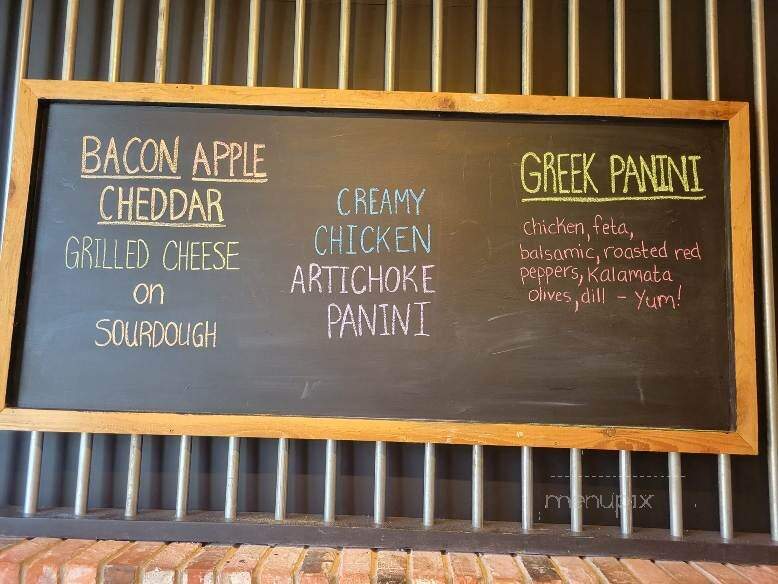 BACON APPLE
CHEDDAR
GRILLED CHEESE
on
SOURDOUGH
CREAMY
CHICKEN
ARTICHOKE
PANINI
GREEK PANINI
chicken, feta,
balsamic, roasted red
peppers, Kalamata
olives, dill - Yum!
menupix